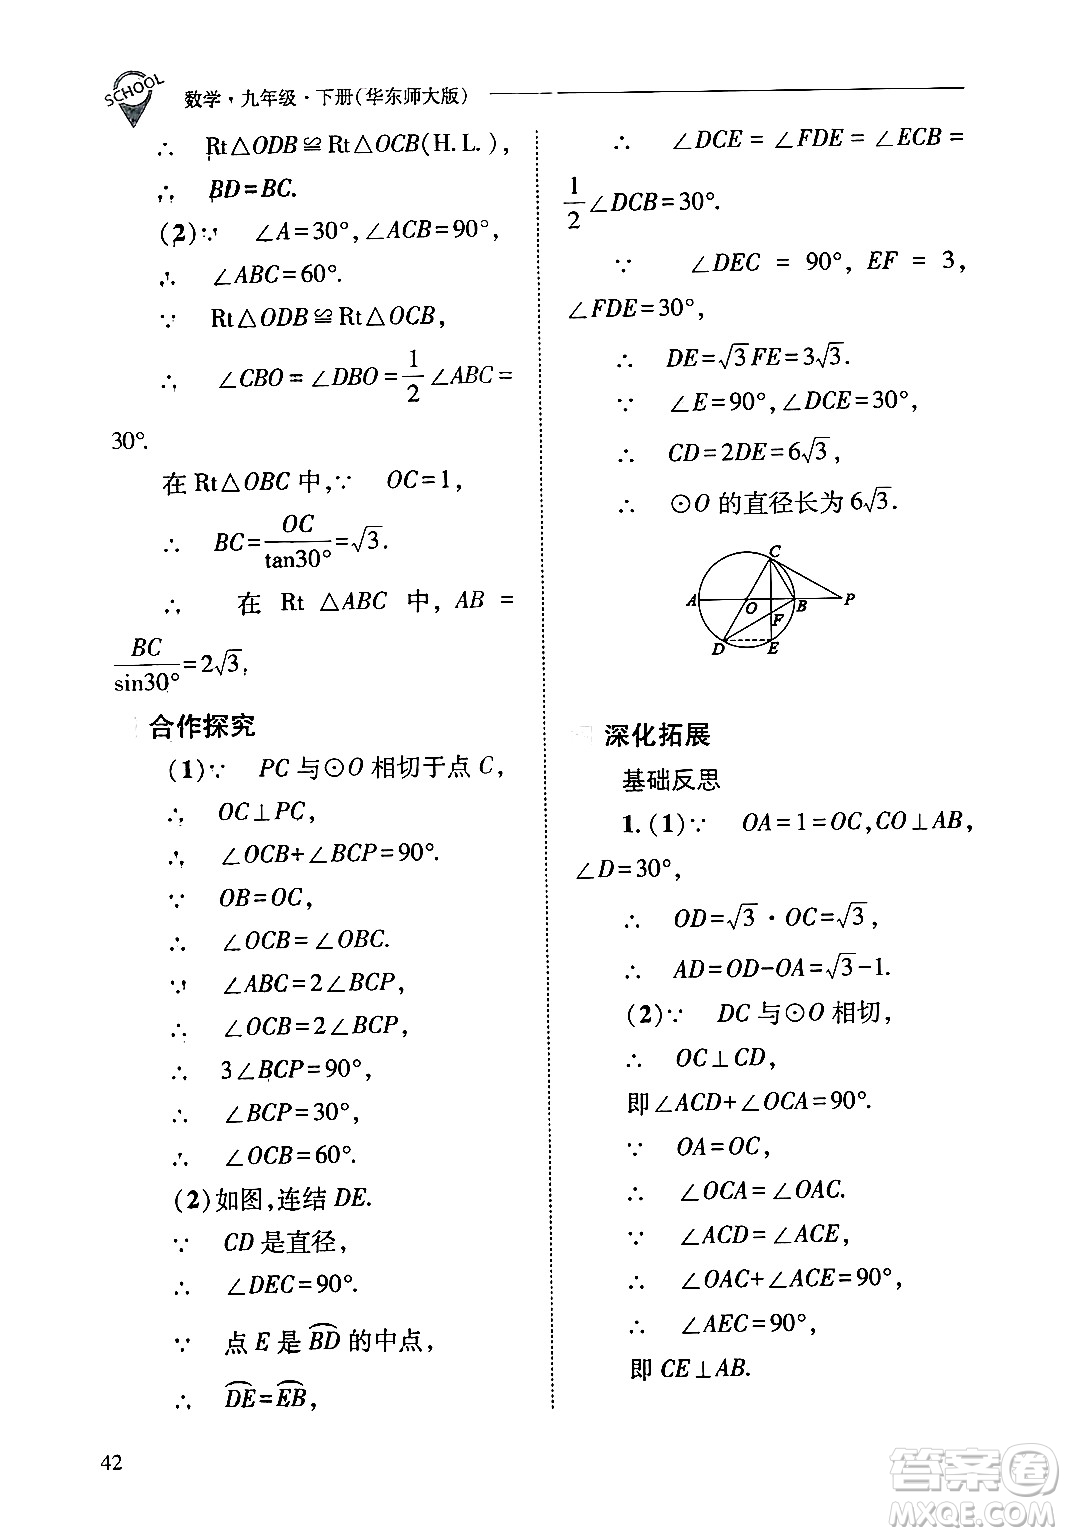 SCHOOL
数学·九年级·下册(华东师大版)
∴ Rt△ODB≌Rt△OCB(H.L.),
∴ BD=BC.
(2)∵ ∠A=30°,∠ACB=90°,
∴ ∠ABC=60°.
∵ Rt△ODB≌Rt△OCB,
∴ ∠CBO=∠DBO=1/2∠ABC=
30°.
在 Rt△OBC 中,∵ OC=1,
∴ BC=OC/tan30°=√3.
∴ 在 Rt △ABC 中, AB =
BC/sin30°=2√3.
合作探究
(1)∵ PC 与⊙O 相切于点 C,
∴ OC⊥PC,
∴ ∠OCB+∠BCP=90°.
∵ OB=OC,
∴ ∠OCB=∠OBC.
∵ ∠ABC=2∠BCP,
∴ ∠OCB=2∠BCP,
∴ 3∠BCP=90°,
∴ ∠BCP=30°,
∴ ∠OCB=60°.
(2)如图,连结 DE.
∵ CD 是直径,
∴ ∠DEC=90°.
∵ 点 E 是 B͡D 的中点,
∴ D͡E=E͡B,
∴ ∠DCE=∠FDE=∠ECB=
1/2∠DCB=30°.
∵ ∠DEC = 90°, EF = 3,
∠FDE=30°,
∴ DE=√3FE=3√3.
∵ ∠E=90°,∠DCE=30°,
∴ CD=2DE=6√3,
∴ ⊙O 的直径长为 6√3.
C
A O B P
F
D E
深化拓展
基础反思
1.(1)∵ OA=1=OC,CO⊥AB,
∠D=30°,
∴ OD=√3·OC=√3,
∴ AD=OD-OA=√3-1.
(2)∵ DC 与⊙O 相切,
∴ OC⊥CD,
即∠ACD+∠OCA=90°.
∵ OA=OC,
∴ ∠OCA=∠OAC.
∵ ∠ACD=∠ACE,
∴ ∠OAC+∠ACE=90°,
∴ ∠AEC=90°,
即 CE⊥AB.
42
答案卷
MXQE.COM